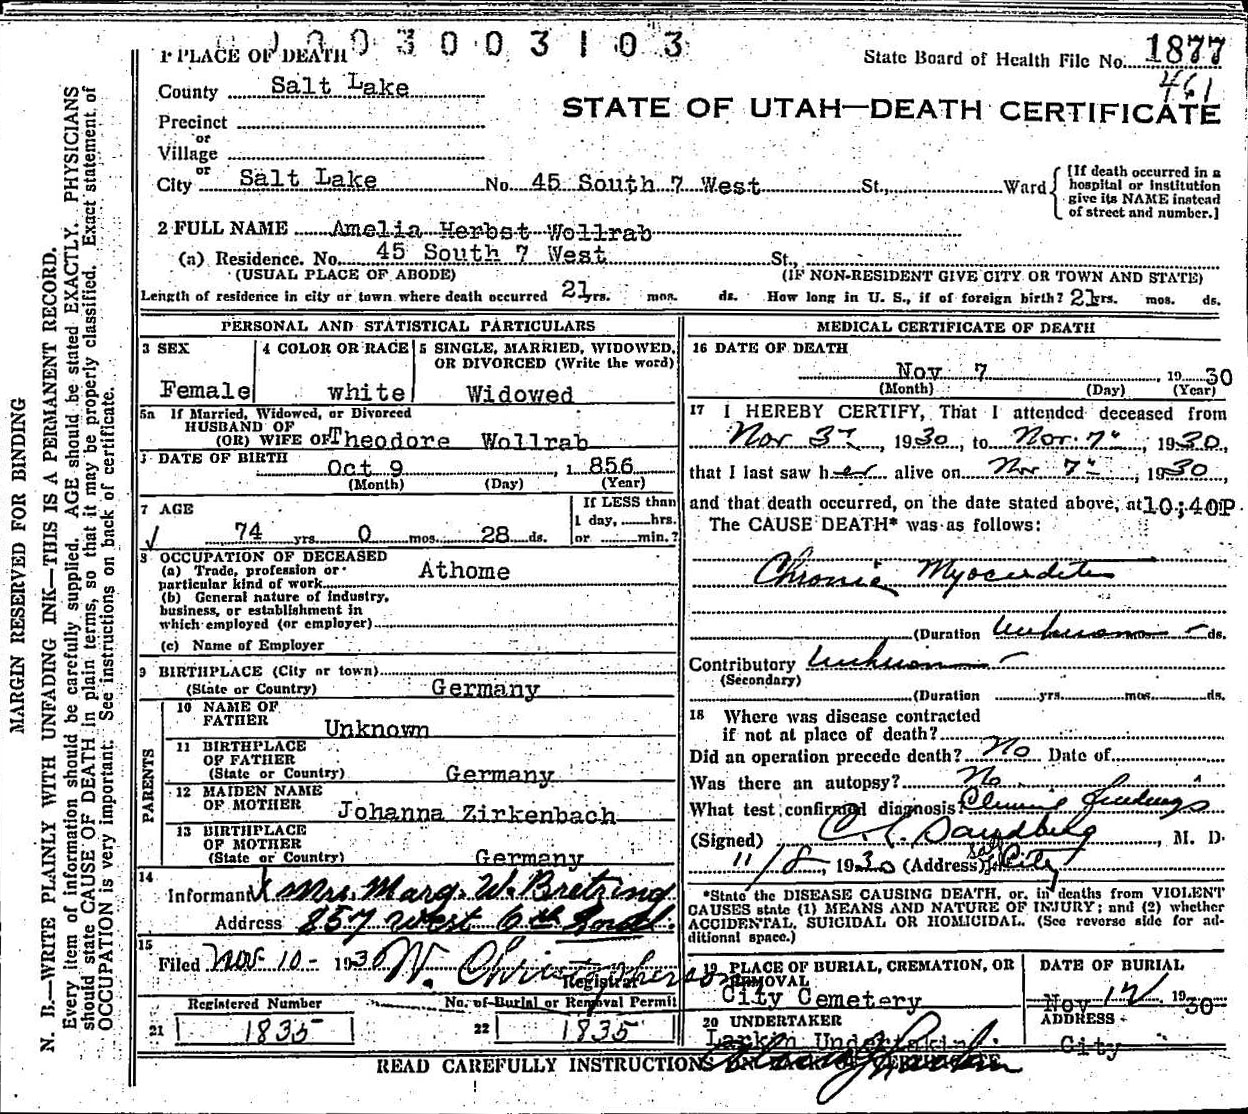 003003103
1 PLACE OF DEATH
State Board of Health File No. 1877
461
County Salt Lake
STATE OF UTAH—DEATH CERTIFICATE
Precinct
or
Village
or
City Salt Lake No. 45 South 7 West St., Ward
[If death occurred in a hospital or institution give its NAME instead of street and number.]
2 FULL NAME Amelia Herbst Wollrab
(a) Residence. No. 45 South 7 West St.,
(USUAL PLACE OF ABODE) (IF NON-RESIDENT GIVE CITY OR TOWN AND STATE)
Length of residence in city or town where death occurred 21 yrs. mos. ds. How long in U. S., if of foreign birth? 21 yrs. mos. ds.
PERSONAL AND STATISTICAL PARTICULARS
3 SEX
Female
4 COLOR OR RACE
white
5 SINGLE, MARRIED, WIDOWED, OR DIVORCED (Write the word)
Widowed
5a If Married, Widowed, or Divorced
HUSBAND OF
(OR) WIFE OF Theodore Wollrab
DATE OF BIRTH
Oct 9, 1856
(Month) (Day) (Year)
7 AGE
74 yrs. 0 mos. 28 ds.
If LESS than
1 day, hrs.
or min.?
8 OCCUPATION OF DECEASED
(a) Trade, profession or
particular kind of work Athome
(b) General nature of industry,
business, or establishment in
which employed (or employer)
(c) Name of Employer
9 BIRTHPLACE (City or town)
(State or Country) Germany
PARENTS
10 NAME OF
FATHER Unknown
11 BIRTHPLACE
OF FATHER
(State or Country) Germany
12 MAIDEN NAME
OF MOTHER Johanna Zirkenbach
13 BIRTHPLACE
OF MOTHER
(State or Country) Germany
14
Informant x Mrs. Marg. W. Bretzing
Address 857 West 6th South
15
Filed Nov 10 - 1930 W. Christopherson
Registrar
Registered Number
21 1835
No. of Burial or Removal Permit
22 1835
MEDICAL CERTIFICATE OF DEATH
16 DATE OF DEATH
Nov 7, 1930
(Month) (Day) (Year)
17 I HEREBY CERTIFY, That I attended deceased from
Nov 3rd, 1930, to Nov. 7", 1930,
that I last saw her alive on Nov 7", 1930,
and that death occurred, on the date stated above, at 10:40P.
The CAUSE DEATH* was as follows:
Chronic Myocarditis
(Duration unknown - ds.
Contributory unknown -
(Secondary)
(Duration yrs. mos. ds.
18 Where was disease contracted
if not at place of death?
Did an operation precede death? No Date of
Was there an autopsy? No
What test confirmed diagnosis? Clinical findings
(Signed) C. L. Sandberg, M. D.
11/8, 1930 (Address) Salt L City
*State the DISEASE CAUSING DEATH, or, in deaths from VIOLENT
CAUSES state (1) MEANS AND NATURE OF INJURY; and (2) whether
ACCIDENTAL, SUICIDAL OR HOMICIDAL. (See reverse side for ad-
ditional space.)
19 PLACE OF BURIAL, CREMATION, OR
REMOVAL
City Cemetery
DATE OF BURIAL
Nov 12, 1930
20 UNDERTAKER
Larkin Undertaking
ADDRESS
City
READ CAREFULLY INSTRUCTIONS ON BACK OF CERTIFICATE
MARGIN RESERVED FOR BINDING
N. B.—WRITE PLAINLY WITH UNFADING INK—THIS IS A PERMANENT RECORD.
Every item of information should be carefully supplied. AGE should be stated EXACTLY. PHYSICIANS
should state CAUSE OF DEATH in plain terms, so that it may be properly classified. Exact statement of
OCCUPATION is very important. See instructions on back of certificate.